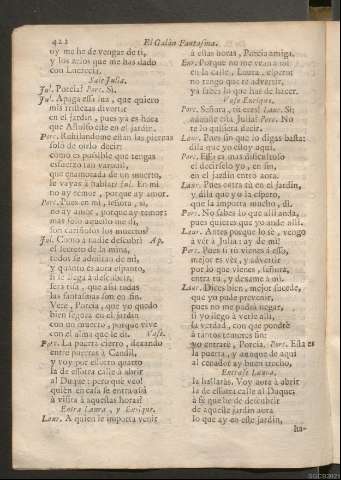 422
El Galàn Fantasma.
oy me he de vengar de ti,
y los zelos que me has dado
con Lucrecia.
Sale Julia.
Jul. Porcia? Porc. Si.
Jul. Apaga essa luz, que quiero
mis tristezas divertir
en el jardin, pues ya es hora
que Astolfo estè en el jardin.
Porc. Rehilandome están las piernas
solo de oirlo decir:
como es possible que tengas
esfuerzo tan varonil,
que enamorada de un muerto,
le vayas à hablar? Jul. En mi
no ay temor, porque ay amor.
Porc. Pues en mi, señora, si,
no ay amor, porque ay temor:
mas solo aquesto me di,
son cariñosos los muertos?
Jul. Como à nadie descubrì Ap.
el secreto de la mina,
todos se admiran de mi,
y quanto es aora espanto,
si le llega à descubrir,
serà risa, que assi todas
las fantasmas son en fin.
Vete, Porcia, que yo quedo
bien segura en el jardin
con un muerto, porque vive
con el alma que le di. Vase.
Porc. La puerta cierro, dexando
entre puertas à Candil,
y voy por essotro quarto
la de essotra calle à abrir
al Duque: pero què veo!
quien en casa se entra assi
à visita à aquestas horas?
Entra Laura, y Enrique.
Laur. A quien le importa venir
à estas horas, Porcia amiga.
Enr. Porque no me vean à mi
en la calle, Laura, esperar
no tengo que te advertir,
ya sabes lo que has de hacer.
Vase Enrique.
Porc. Señora, tù eres? Laur. Si;
adonde està Julia? Porc. No
te lo quisiera decir.
Laur. Pues sin que lo digas basta:
dila que yo estoy aqui.
Porc. Esso es mas dificultoso
el decirselo yo, en fin,
en el jardin entrò aora.
Laur. Pues entra tù en el jardin,
y dila que yo la espero,
que la importa mucho, di.
Porc. No sabes lo que allì anda,
pues quieres que yo ande allì.
Laur. Antes porque lo sè, vengo
à vèr à Julia: ay de mi!
Porc. Pues si tù vienes à esso,
mejor es vèr, y advertir
por lo que vienes, señora,
entra tù, y dexame à mi.
Laur. Dices bien, mejor sucede,
que yo pude prevenir,
pues no me podrà negar,
si yo llego à verle allì,
la verdad, con que pondrè
à tantos temores fin:
yo entrarè, Porcia. Porc. Esta es
la puerta, y aunque de aqui
al cenador ay buen trecho,
Entrase Laura.
la hallaràs. Voy aora à abrir
la de essotra calle al Duque:
à fè que he de descubrir
de aqueste jardin aora
lo que ay en este jardin,
ha-